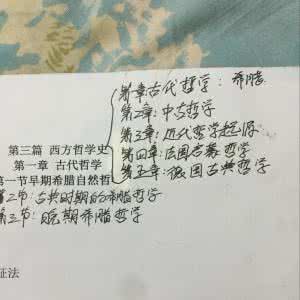 第一章古代哲学：希腊
第2章：中古哲学
第3章：近代哲学起源
第四章：法国启蒙哲学
第五章：德国古典哲学
第三篇 西方哲学史
第一章 古代哲学
第一节早期希腊自然哲
第二节：古典时期的希腊哲学
第三节：晚期希腊哲学
证法